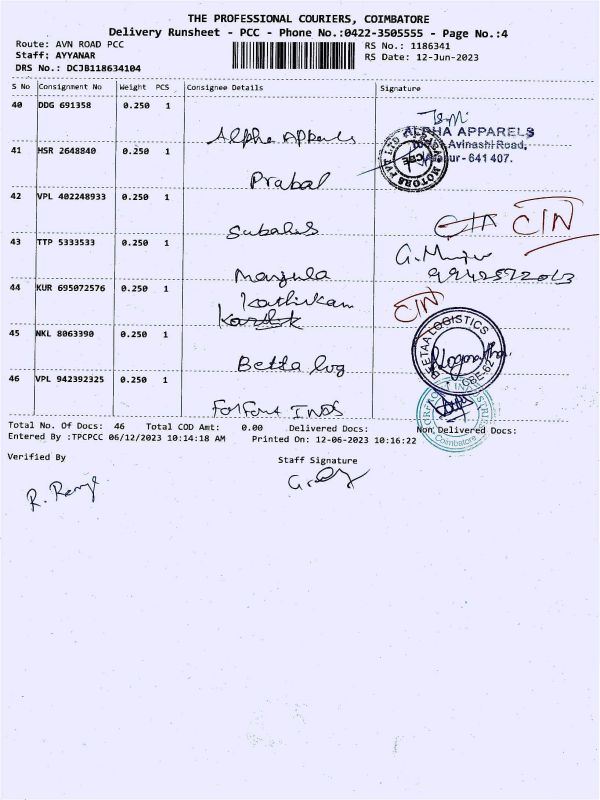 THE PROFESSIONAL COURIERS, COIMBATORE
Delivery Runsheet - PCC - Phone No.:0422-3505555 - Page No.:4
Route: AVN ROAD PCC
Staff: AYYANAR
DRS No.: DCJB118634104
RS No.: 1186341
RS Date: 12-Jun-2023
S No Consignment No Weight PCS Consignee Details Signature
40 DDG 691358 0.250 1 Alpha Apparels
ALPHA APPARELS
Avinashi Road,
641 407.
41 HSR 2648840 0.250 1 Prabal
MOTORS PVT LTD
CBE
42 VPL 402248933 0.250 1 Subahas
CIN
43 TTP 5333533 0.250 1 Manjula
G.
44 KUR 695072576 0.250 1 Kathirkam
CIN
45 NKL 8063390 0.250 1 Betta log
BEETAA LOGISTICS
CBE-62
46 VPL 942392325 0.250 1 INDS
Coimbatore
Total No. Of Docs: 46 Total COD Amt: 0.00 Delivered Docs: Non Delivered Docs:
Entered By :TPCPCC 06/12/2023 10:14:18 AM Printed On: 12-06-2023 10:16:22
Verified By
Staff Signature
R.